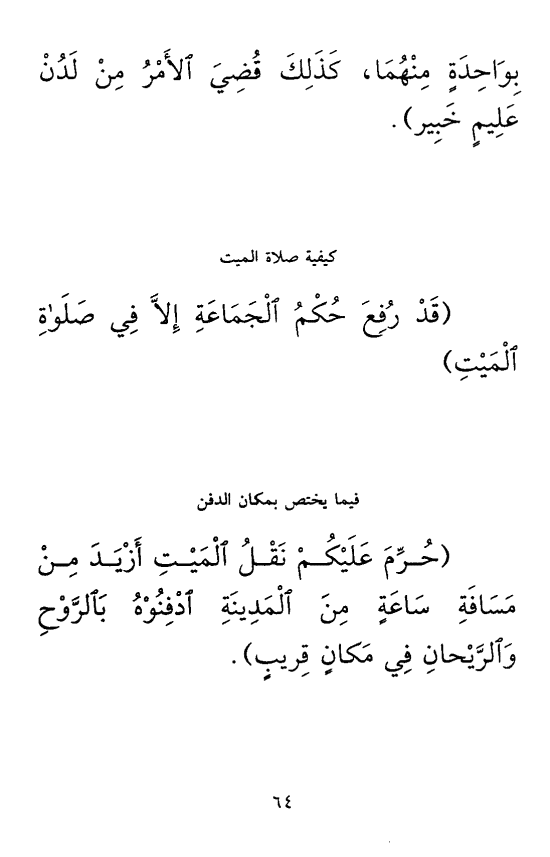 بِوَاحِدَةٍ مِنْهُمَا، كَذَلِكَ قُضِيَ ٱلأَمْرُ مِنْ لَدُنْ
عَلِيمٍ خَبِير).
كيفية صلاة الميت
(قَدْ رُفِعَ حُكْمُ ٱلْجَمَاعَةِ إِلاَّ فِي صَلَوٰةِ
ٱلْمَيْتِ)
فيما يختص بمكان الدفن
(حُـرِّمَ عَلَيْكُـمْ نَقْلُ ٱلْمَيْـتِ أَزْيَـدَ مِـنْ
مَسَافَةِ سَاعَةٍ مِنَ ٱلْمَدِينَةِ ٱدْفِنُوْهُ بَٱلرَّوْحِ
وَٱلرَّيْحانِ فِي مَكانٍ قِريبٍ).
٦٤